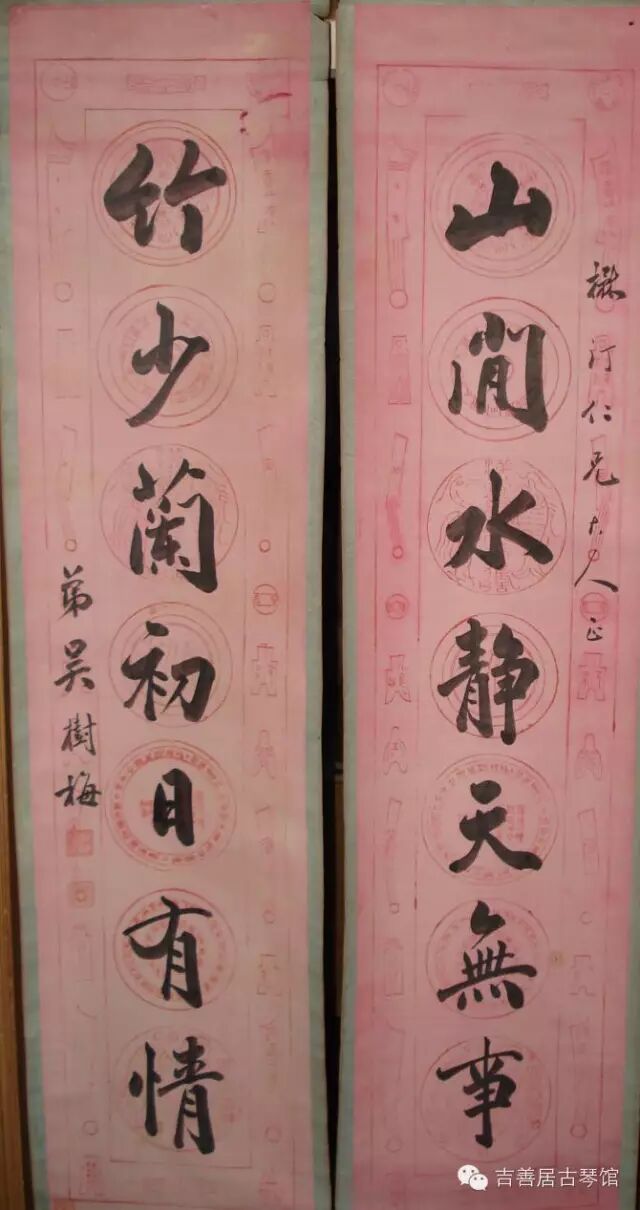 汀仁兄大人正
山閒水静天無事
竹少蘭初日有情
弟吴樹梅
吉善居古琴馆